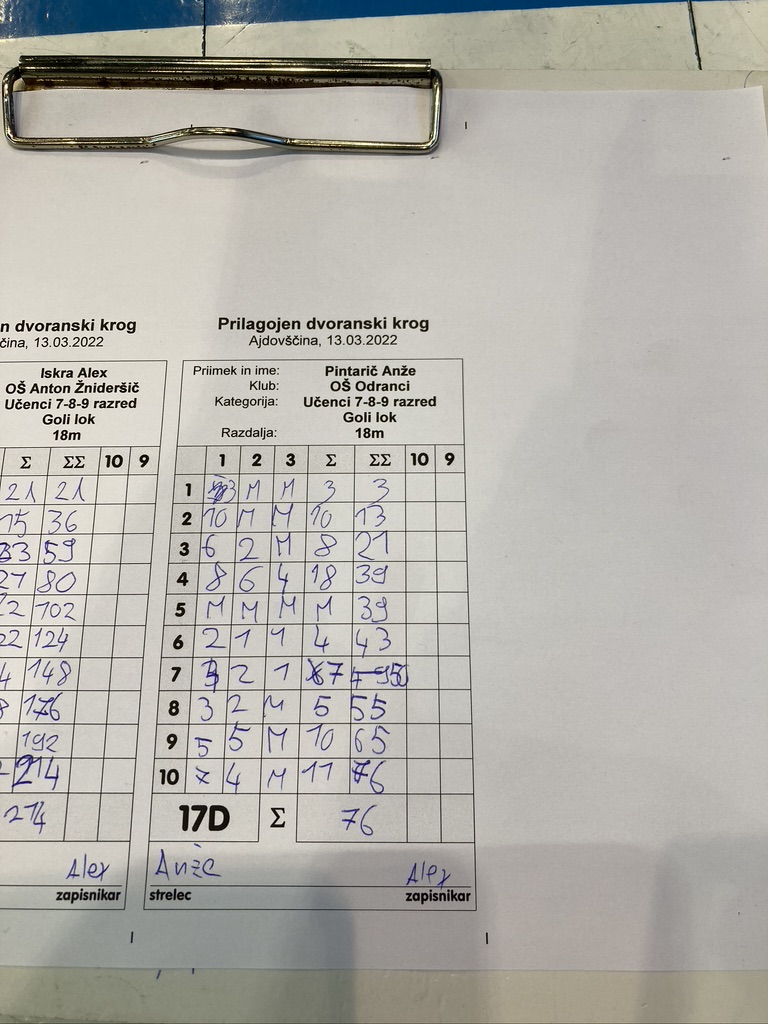 n dvoranski krog
čina, 13.03.2022
Iskra Alex
OŠ Anton Žnideršič
Učenci 7-8-9 razred
Goli lok
18m
Σ ΣΣ 10 9
21 21
15 36
59
27 80
2 102
22 124
4 148
8 176
192
214
214
Alex
zapisnikar
Prilagojen dvoranski krog
Ajdovščina, 13.03.2022
Priimek in ime: Pintarič Anže
Klub: OŠ Odranci
Kategorija: Učenci 7-8-9 razred
Goli lok
Razdalja: 18m
1 2 3 Σ ΣΣ 10 9
1 3 M M 3 3
2 10 M M 10 13
3 6 2 M 8 21
4 8 6 4 18 39
5 M M M M 39
6 2 1 1 4 43
7 2 1 7 50
8 3 2 M 5 55
9 5 5 M 10 65
10 7 4 M 11 76
17D Σ 76
Anže Alex
strelec zapisnikar